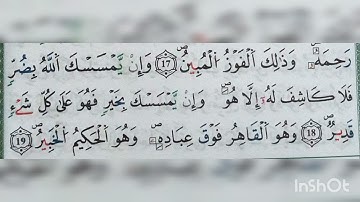 رَحِمَهُۥ وَذَٰلِكَ ٱلْفَوْزُ ٱلْمُبِينُ 17 وَإِن يَمْسَسْكَ ٱللَّهُ بِضُرٍّ
فَلَا كَاشِفَ لَهُۥٓ إِلَّا هُوَ وَإِن يَمْسَسْكَ بِخَيْرٍ فَهُوَ عَلَىٰ كُلِّ شَىْءٍ
قَدِيرٌ 18 وَهُوَ ٱلْقَاهِرُ فَوْقَ عِبَادِهِۦ وَهُوَ ٱلْحَكِيمُ ٱلْخَبِيرُ 19
InShOt